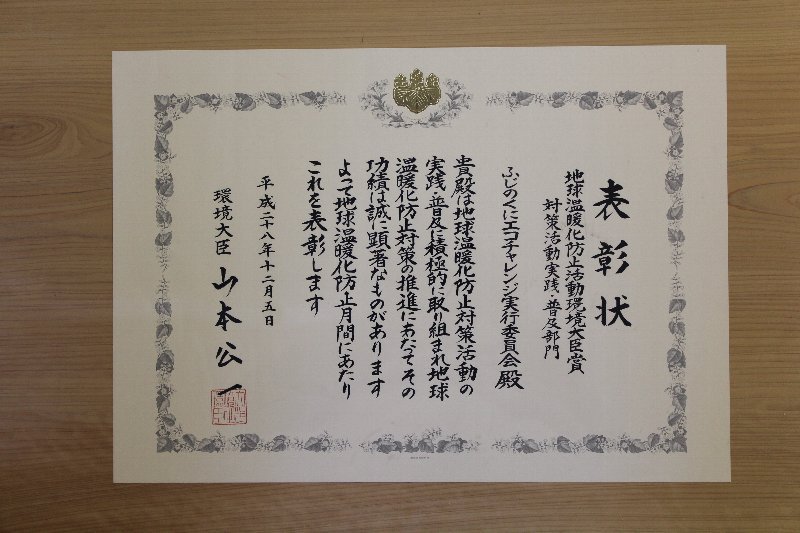 表彰状
地球温暖化防止活動環境大臣賞
対策活動実践・普及部門
ふじのくにエコチャレンジ実行委員会殿
貴殿は地球温暖化防止対策活動の
実践・普及に積極的に取り組まれ地球
温暖化防止対策の推進にあたってその
功績は誠に顕著なものがあります
よって地球温暖化防止月間にあたり
これを表彰します
平成二十八年十二月五日
環境大臣 山本公一